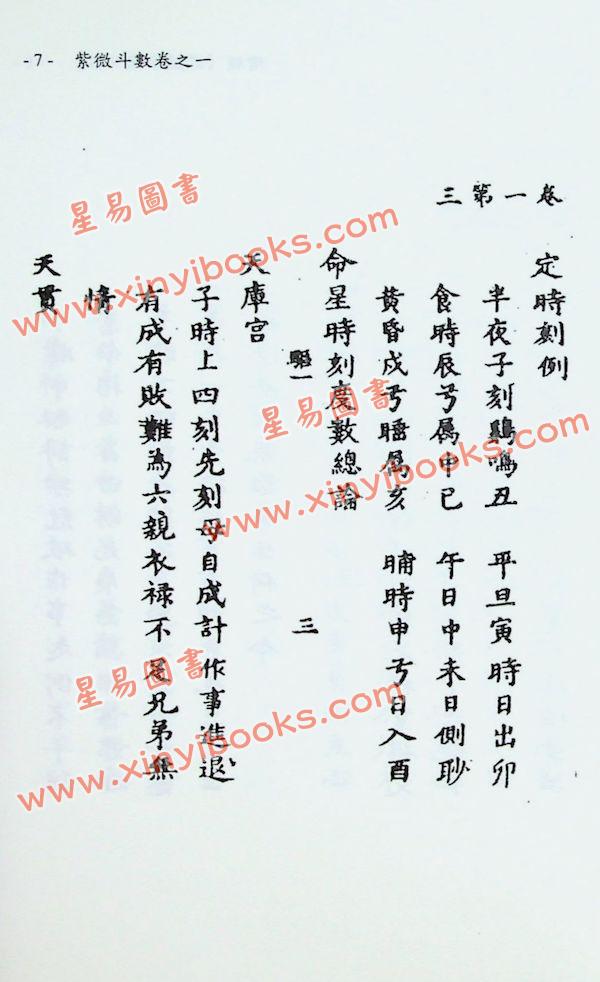 -7- 紫微斗數卷之一
三第一卷
定時刻例
半夜子刻鷄鳴丑 平旦寅時日出卯
食時辰兮属中巳 午日中未日側眇
黃昏戌兮睡属亥 晡時申兮日入酉
命星時刻度數總論
天庫宮
子時上四刻先刻母自成計作事進退
有成有敗難為六親衣祿不足兄弟無
情
天貫
三
星易圖書
www.xinyibooks.com
星易圖書
www.xinyibooks.com
星易圖書
www.xinyibooks.com